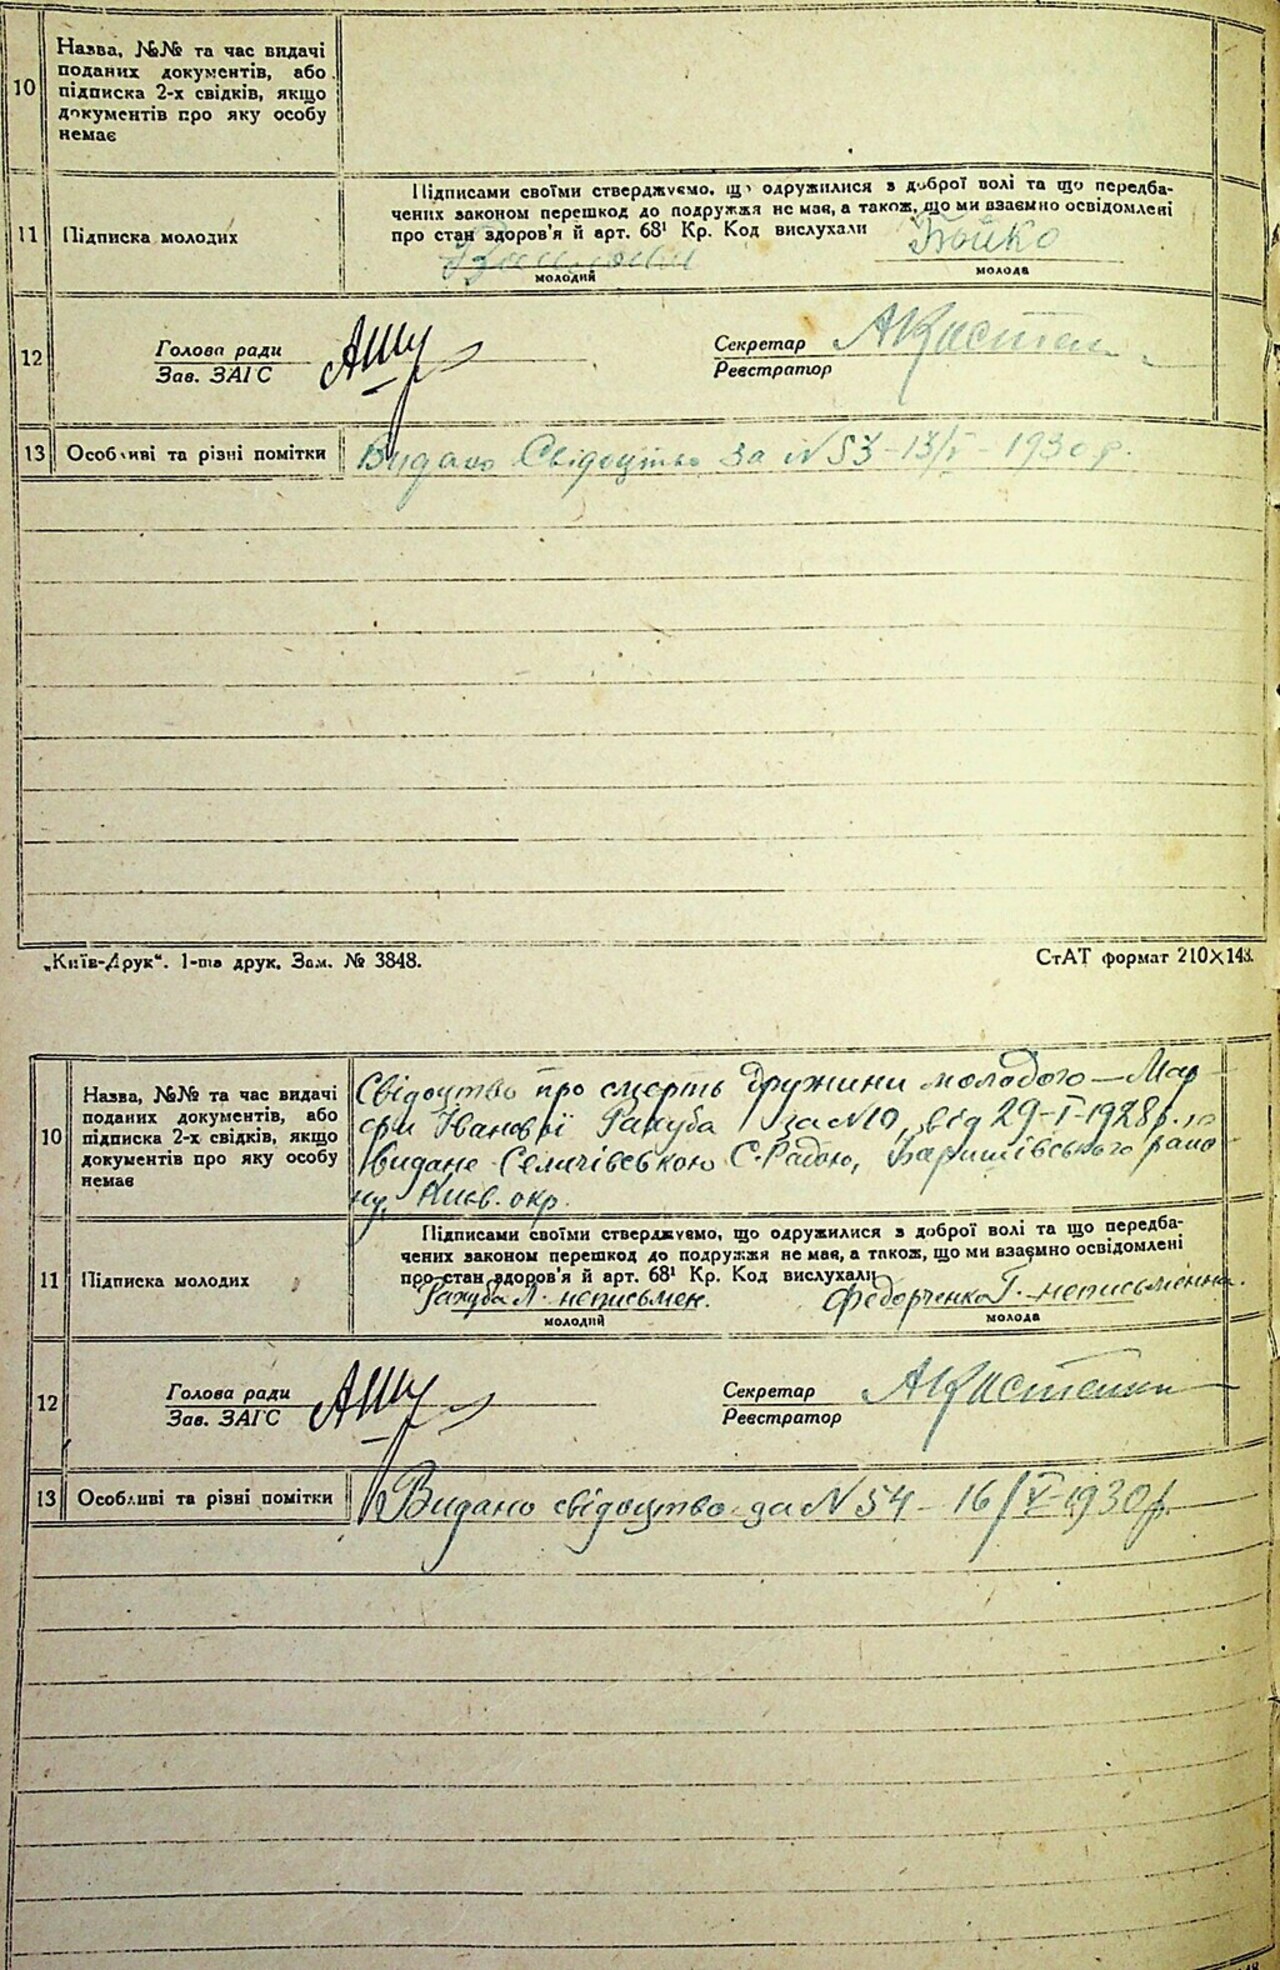 10
Назва, №№ та час видачі
поданих документів, або
підписка 2-х свідків, якщо
документів про яку особу
немає
11
Підписка молодих
Підписами своїми стверджуємо, що одружилися з доброї волі та що передба-
чених законом перешкод до подружжя не має, а також, що ми взаємно освідомлені
про стан здоров'я й арт. 68¹ Кр. Код вислухали
Бойко
молодий
молода
12
Голова ради
Зав. ЗАГС
Секретар
Реєстратор
13
Особливі та різні помітки
Видано Свідоцтво за N 53 - 13/V - 1930 р.
„Київ-Друк“. 1-ша друк. Зам. № 3848.
СтАТ формат 210×148.
10
Назва, №№ та час видачі
поданих документів, або
підписка 2-х свідків, якщо
документів про яку особу
немає
Свідоцтво про смерть дружини молодого — Мар
фи Іванової за N 10, від 29-I-1928 р.
видане Селичівською С.Радою, Баришівського райо
ну, Київ. окр.
11
Підписка молодих
Підписами своїми стверджуємо, що одружилися з доброї волі та що передба-
чених законом перешкод до подружжя не має, а також, що ми взаємно освідомлені
про стан здоров'я й арт. 68¹ Кр. Код вислухали
неписьмен.
Федорченко Г. неписьменна.
молодий
молода
12
Голова ради
Зав. ЗАГС
Секретар
Реєстратор
13
Особливі та різні помітки
Видано свідоцтво за N 54 - 16/V-1930 р.